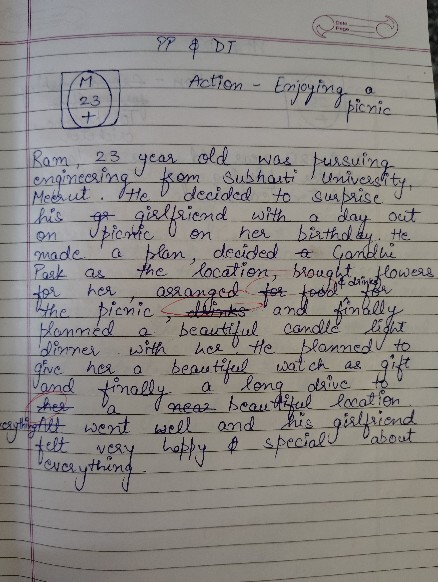 Date
Page
PP & DT
M
23
+
Action - Enjoying a
picnic
Ram, 23 year old was pursuing
engineering from Subharti University,
Meerut. He decided to surprise
his girlfriend with a day out
on picnic on her birthday. He
made a plan, decided Gandhi
Park as the location, brought flowers
for her, arranged food & drinks for
the picnic, and finally
planned a beautiful candle light
dinner with her He planned to
give her a beautiful watch as gift
and finally a long drive to
a beautiful location
everything went well and his girlfriend
felt very happy & special about
everything.